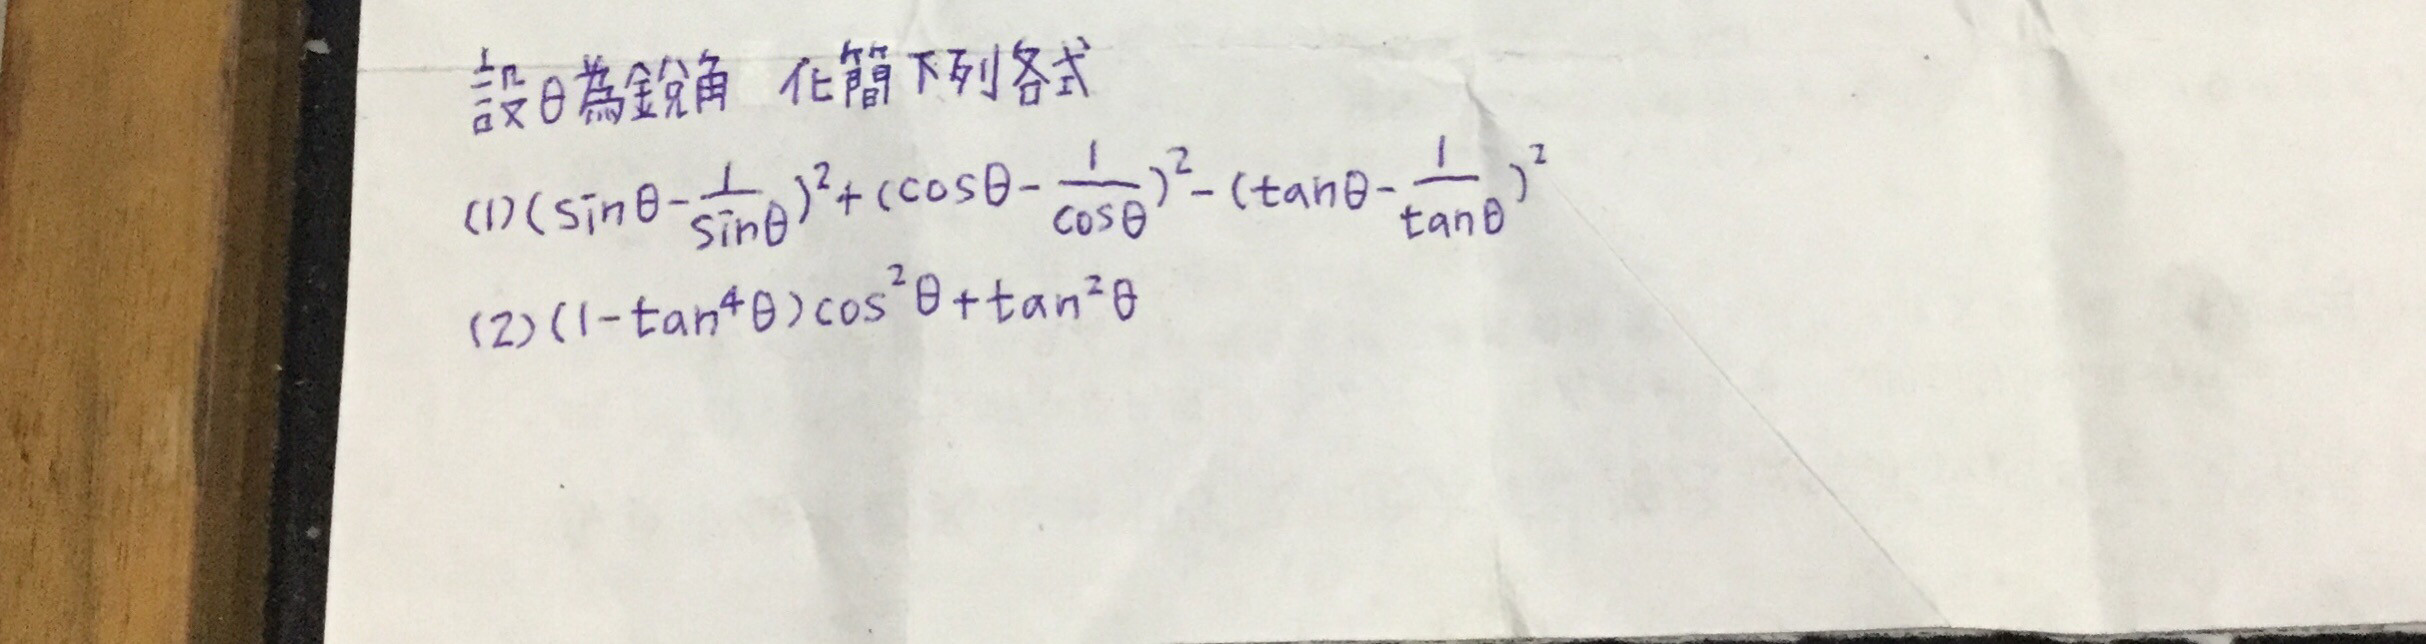 設θ為銳角 化簡下列各式
(1)(sinθ-1/sinθ)²+(cosθ-1/cosθ)²-(tanθ-1/tanθ)²
(2)(1-tan⁴θ)cos²θ+tan²θ